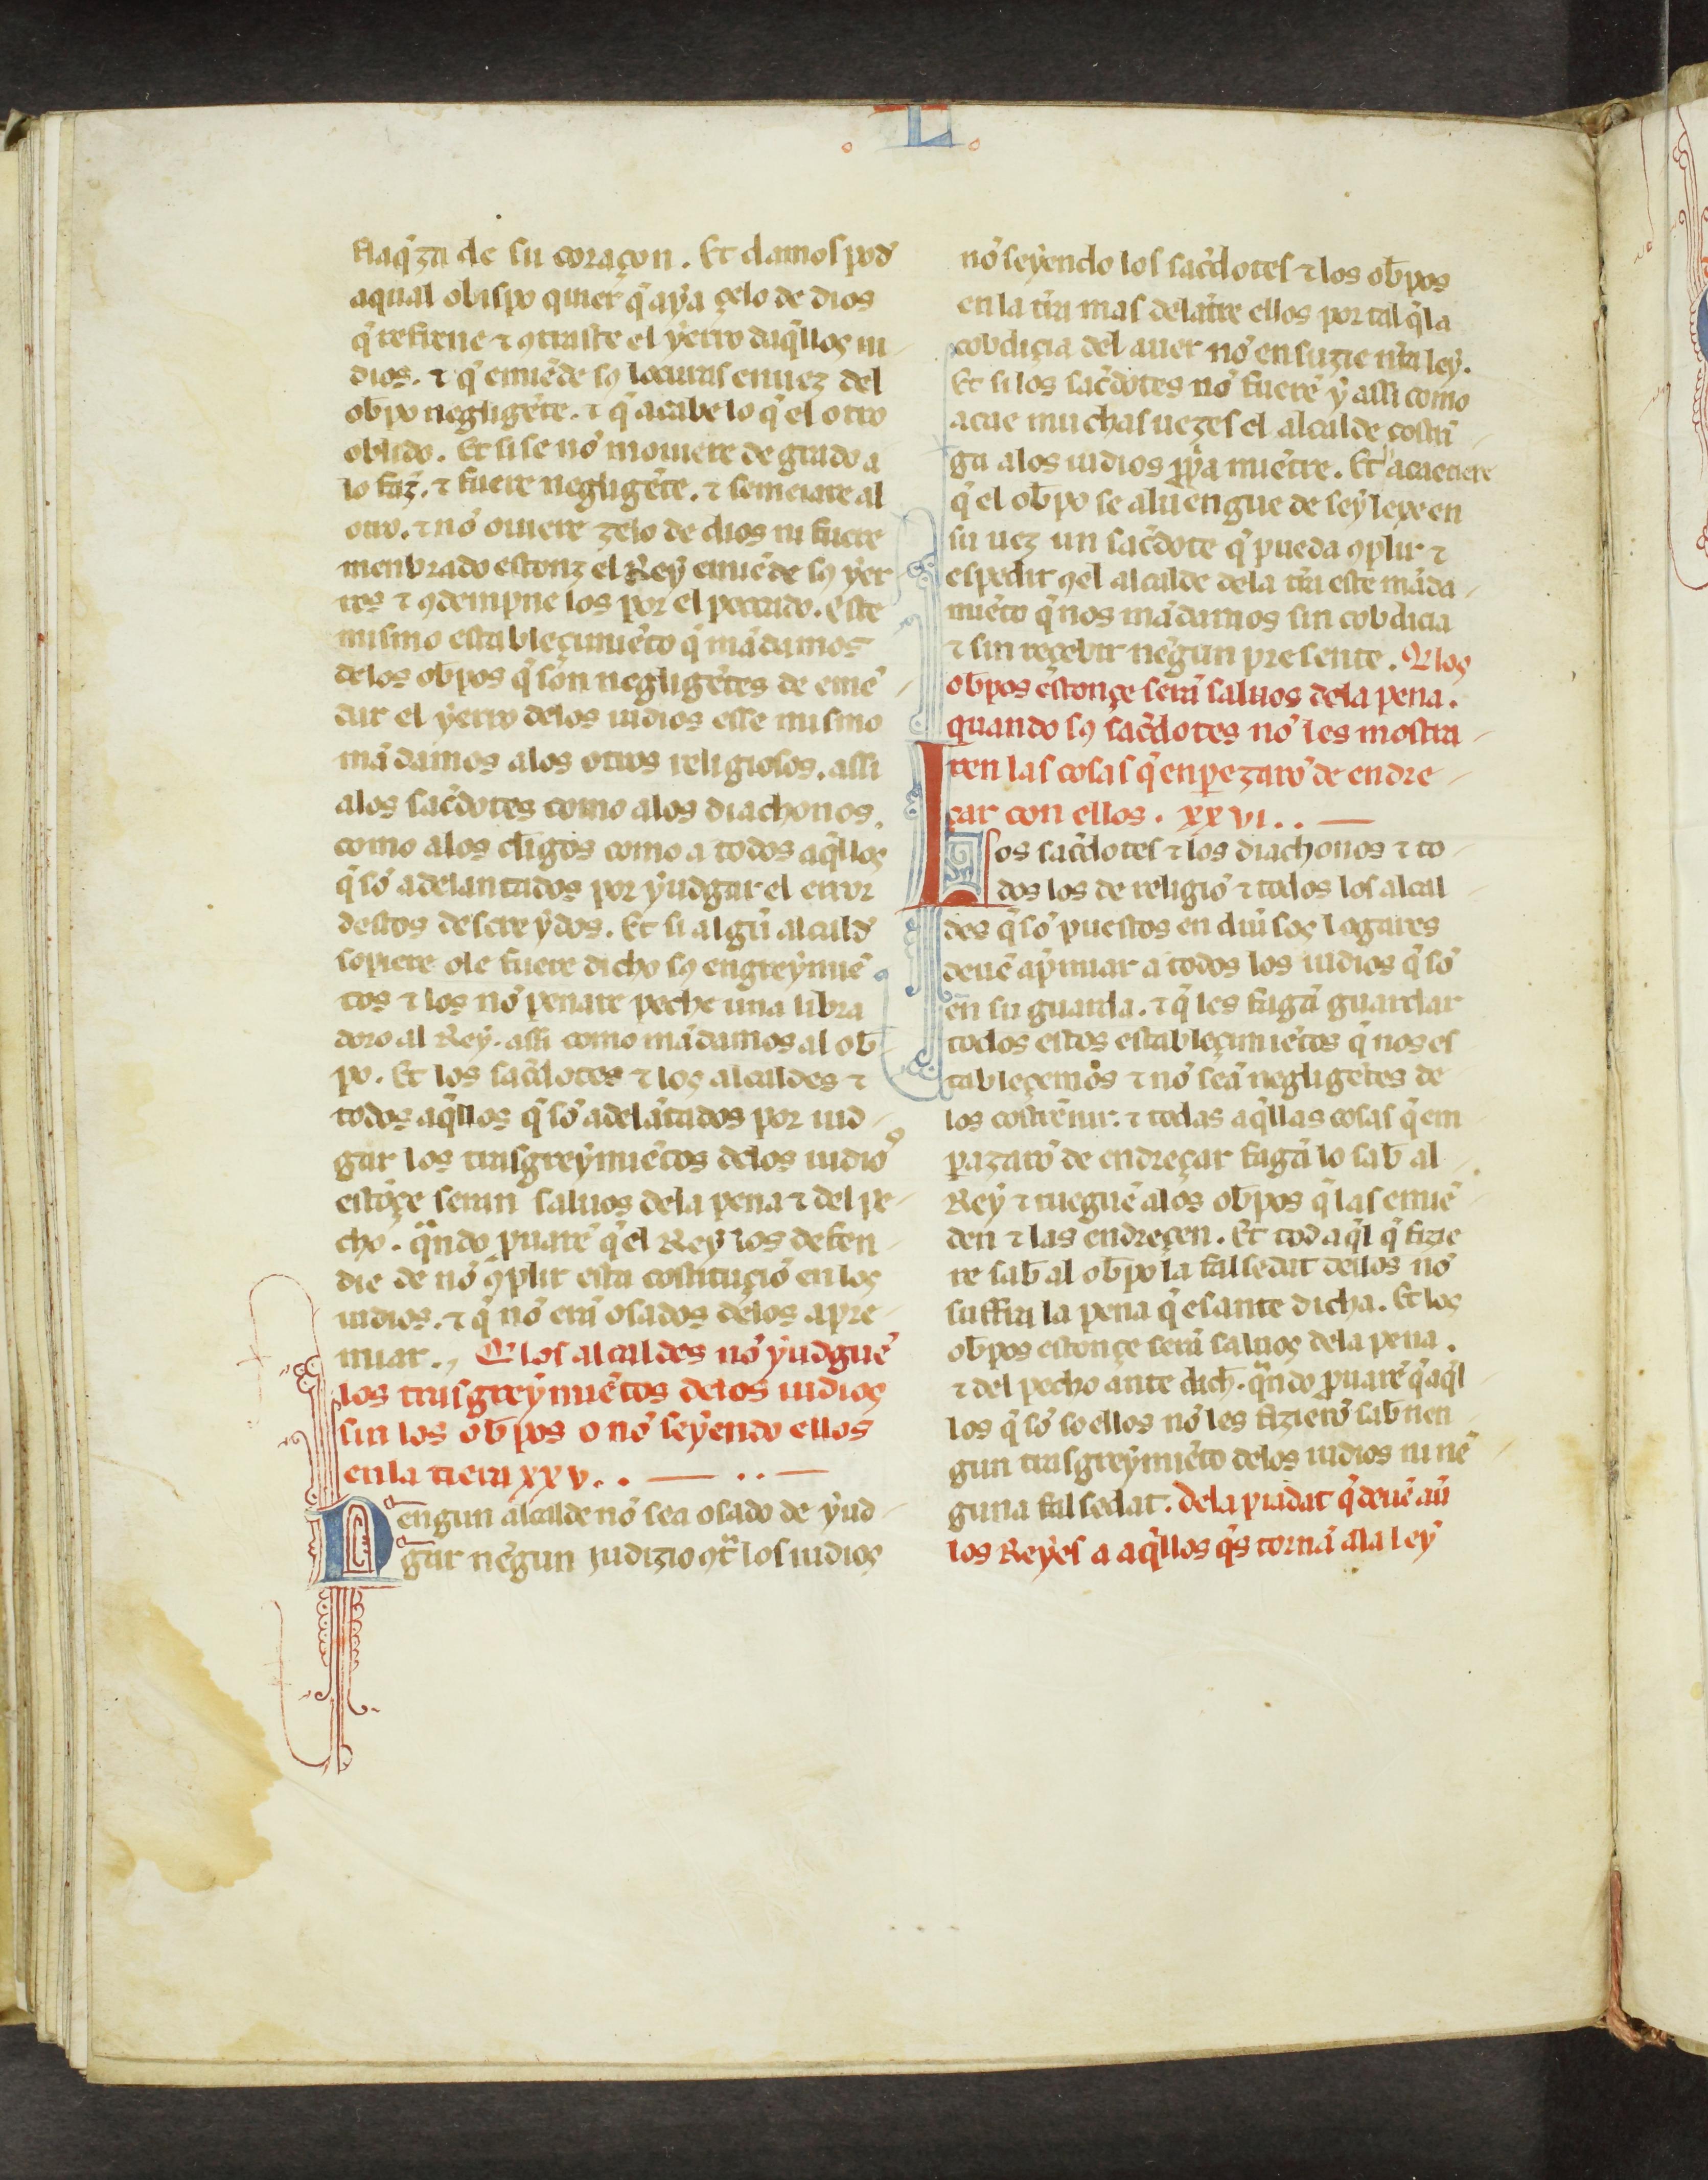 L
flaq̃za de su coraçon. Et damos pod̃
a qual obispo quier q̃ aya çelo de dios
q̃ refrene ⁊ ꝯtraste el yerro daq̃llos iu
dios. ⁊ q̃ emiẽde sꝯ locuras en uez del
ob̃po negligẽte. ⁊ q̃ acabe lo q̃ el otro
oblido. Et si se nõ mouiere de grado a
lo faz̃. ⁊ fuere negligẽte. ⁊ semeiare al
otro. ⁊ nõ ouiere zelo de dios ni fuere
menbrado estonz el Rey emiẽde sꝯ yer
ros ⁊ ꝯdempne los por el peccado. Este
mismo estableçimiẽto q̃ mãdamos
delos ob̃pos q̃ son negligẽtes de emẽ
dar el yerro delos iudios esse mismo
mãdamos alos otros religiosos. assi
alos sac̃dotes como alos diachonos.
como alos cl̃igos como a todos aq̃llos
q̃ sõ adelantados por yudgar el error
destos descreydos. Et si algũ alcald̃
sopiere o le fuere dicho sꝯ engreymiẽ
tos ⁊ los nõ penare peche una libra
doro al Rey. assi como mãdamos al ob̃
po. Et los sac̃dotes ⁊ los alcaldes ⁊
todos aq̃llos q̃ sõ adelãtados por iud
gar los trasgreymiẽtos delos iudios
estõçe seran saluos dela pena ⁊ del pe
cho. q̃ndo ꝓuarẽ q̃ el Rey los defen
die de nõ ꝯplir esta costituçiõ en los
iudios. ⁊ q̃ nõ erã osados delos apre
miar. Q̃ los alcaldes nõ yudguẽ
los trasgreymiẽtos delos iudios
sin los ob̃pos o nõ seyendo ellos
en la tierra xxv.
Nengun alcalde nõ sea osado de yud
gar nengun iudizio ꝯt̃ los iudios
nõ seyendo los sac̃dotes ⁊ los ob̃pos
en la tr̃ra mas delãtre ellos por tal q̃ la
cobdiçia del auer nõ ensuzie nr̃a ley.
Et si los sac̃dotes nõ fuerẽ y assi como
acae muchas uezes el alcalde costrĩ
ga alos iudios ꝓp̃a miẽtre. Et si acaeciere
q̃ el ob̃po se aluengue de sey lexe en
su uez un sac̃dote q̃ pueda ꝯplir ⁊
espedir ꝯel alcalde dela tr̃ra este mãda
miẽto q̃ nos mãdamos sin cobdicia
⁊ sin reçebir nẽgun presente. Q̃ los
ob̃pos estonçe serã saluos dela pena.
quando sꝯ sac̃dotes nõ les mostra
ren las cosas q̃ enpezarõ de endre
çar con ellos. xxvi.
Los sac̃dotes ⁊ los diachonos ⁊ to
dos los de religiõ ⁊ todos los alcal
des q̃ sõ puestos en diũsos logares
deuẽ ap̃miar a todos los iudios q̃ sõ
en su guarda. ⁊ q̃ les fagã guardar
todos estos establecimiẽtos q̃ nos es
tableçemos ⁊ nõ seã negligẽtes de
los costrẽnir. ⁊ todas aq̃llas cosas q̃ em
pazarõ de endreçar fagã lo sab̃ al
Rey ⁊ rueguẽ alos ob̃pos q̃ las emiẽ
den ⁊ las endreçen. Et tod aq̃l q̃ fizie
re sab̃ al ob̃po la falsedat dellos nõ
suffra la pena q̃ es ante dicha. Et los
ob̃pos estonçe serã saluos dela pena.
⁊ del pecho ante dich̃. q̃ndo ꝓuarẽ q̃ aq̃l
los q̃ sõ so ellos nõ les fizierõ sab̃ nen
gun trasgreymiẽto delos iudios ni nẽ
guna falsedat. Dela piadat q̃ deuẽ aũ
los Reyes a aq̃llos q̃s tornã ala ley